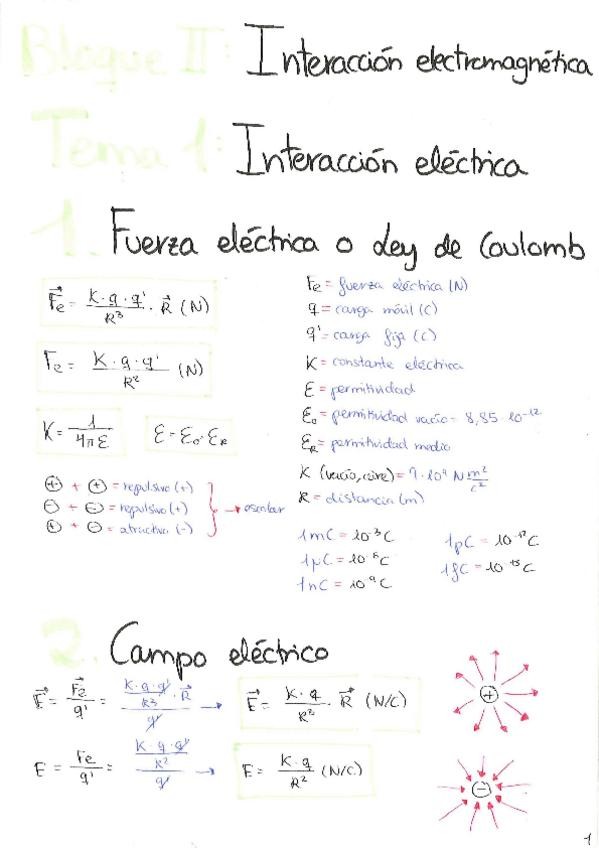 Bloque II: Interacción electromagnética
Tema 1: Interacción eléctrica
1. Fuerza eléctrica o Ley de Coulomb
F⃗e = K·q·q' / R³ · R⃗ (N)
Fe = K·q·q' / R² (N)
K = 1 / 4πε
ε = ε₀·εR
⊕ + ⊕ = repulsivo (+)
⊖ + ⊖ = repulsivo (+)
⊕ + ⊖ = atractivo (-)
→ escalar
Fe = fuerza eléctrica (N)
q = carga móvil (C)
q' = carga fija (C)
K = constante eléctrica
ε = permitividad
ε₀ = permitividad vacío = 8,85·10⁻¹²
εR = permitividad medio
K (vacío, aire) = 9·10⁹ N m²/c²
R = distancia (m)
1mC = 10⁻³C
1μC = 10⁻⁶C
1nC = 10⁻⁹C
1pC = 10⁻¹²C
1fC = 10⁻¹⁵C
2. Campo eléctrico
E⃗ = F⃗e / q' = K·q·q' / R³ · R⃗ / q' → E⃗ = K·q / R³ · R⃗ (N/C)
E = Fe / q' = K·q·q' / R² / q' → E = K·q / R² (N/C)
+
-
1